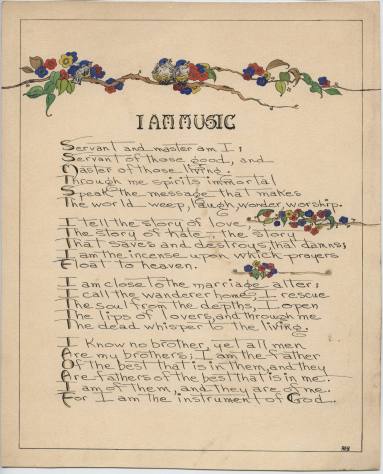 I AM MUSIC
Servant and master am I;
Servant of those good, and
Master of those living.
Through me spirits immortal
Speak the message that makes
The world weep, laugh, wonder, worship.
I tell the story of love
The story of hate - the story
That saves and destroys, that damns;
I am the incense upon which prayers
Float to heaven.
I am close to the marriage alter;
I call the wanderer home; I rescue
The soul from the depths, I open
The lips of lovers, and through me
The dead whisper to the living.
I Know no brother, yet all men
Are my brothers; I am the father
Of the best that is in them, and they
Are fathers of the best that is in me.
I am of them, and they are of me.
For I am the instrument of God.